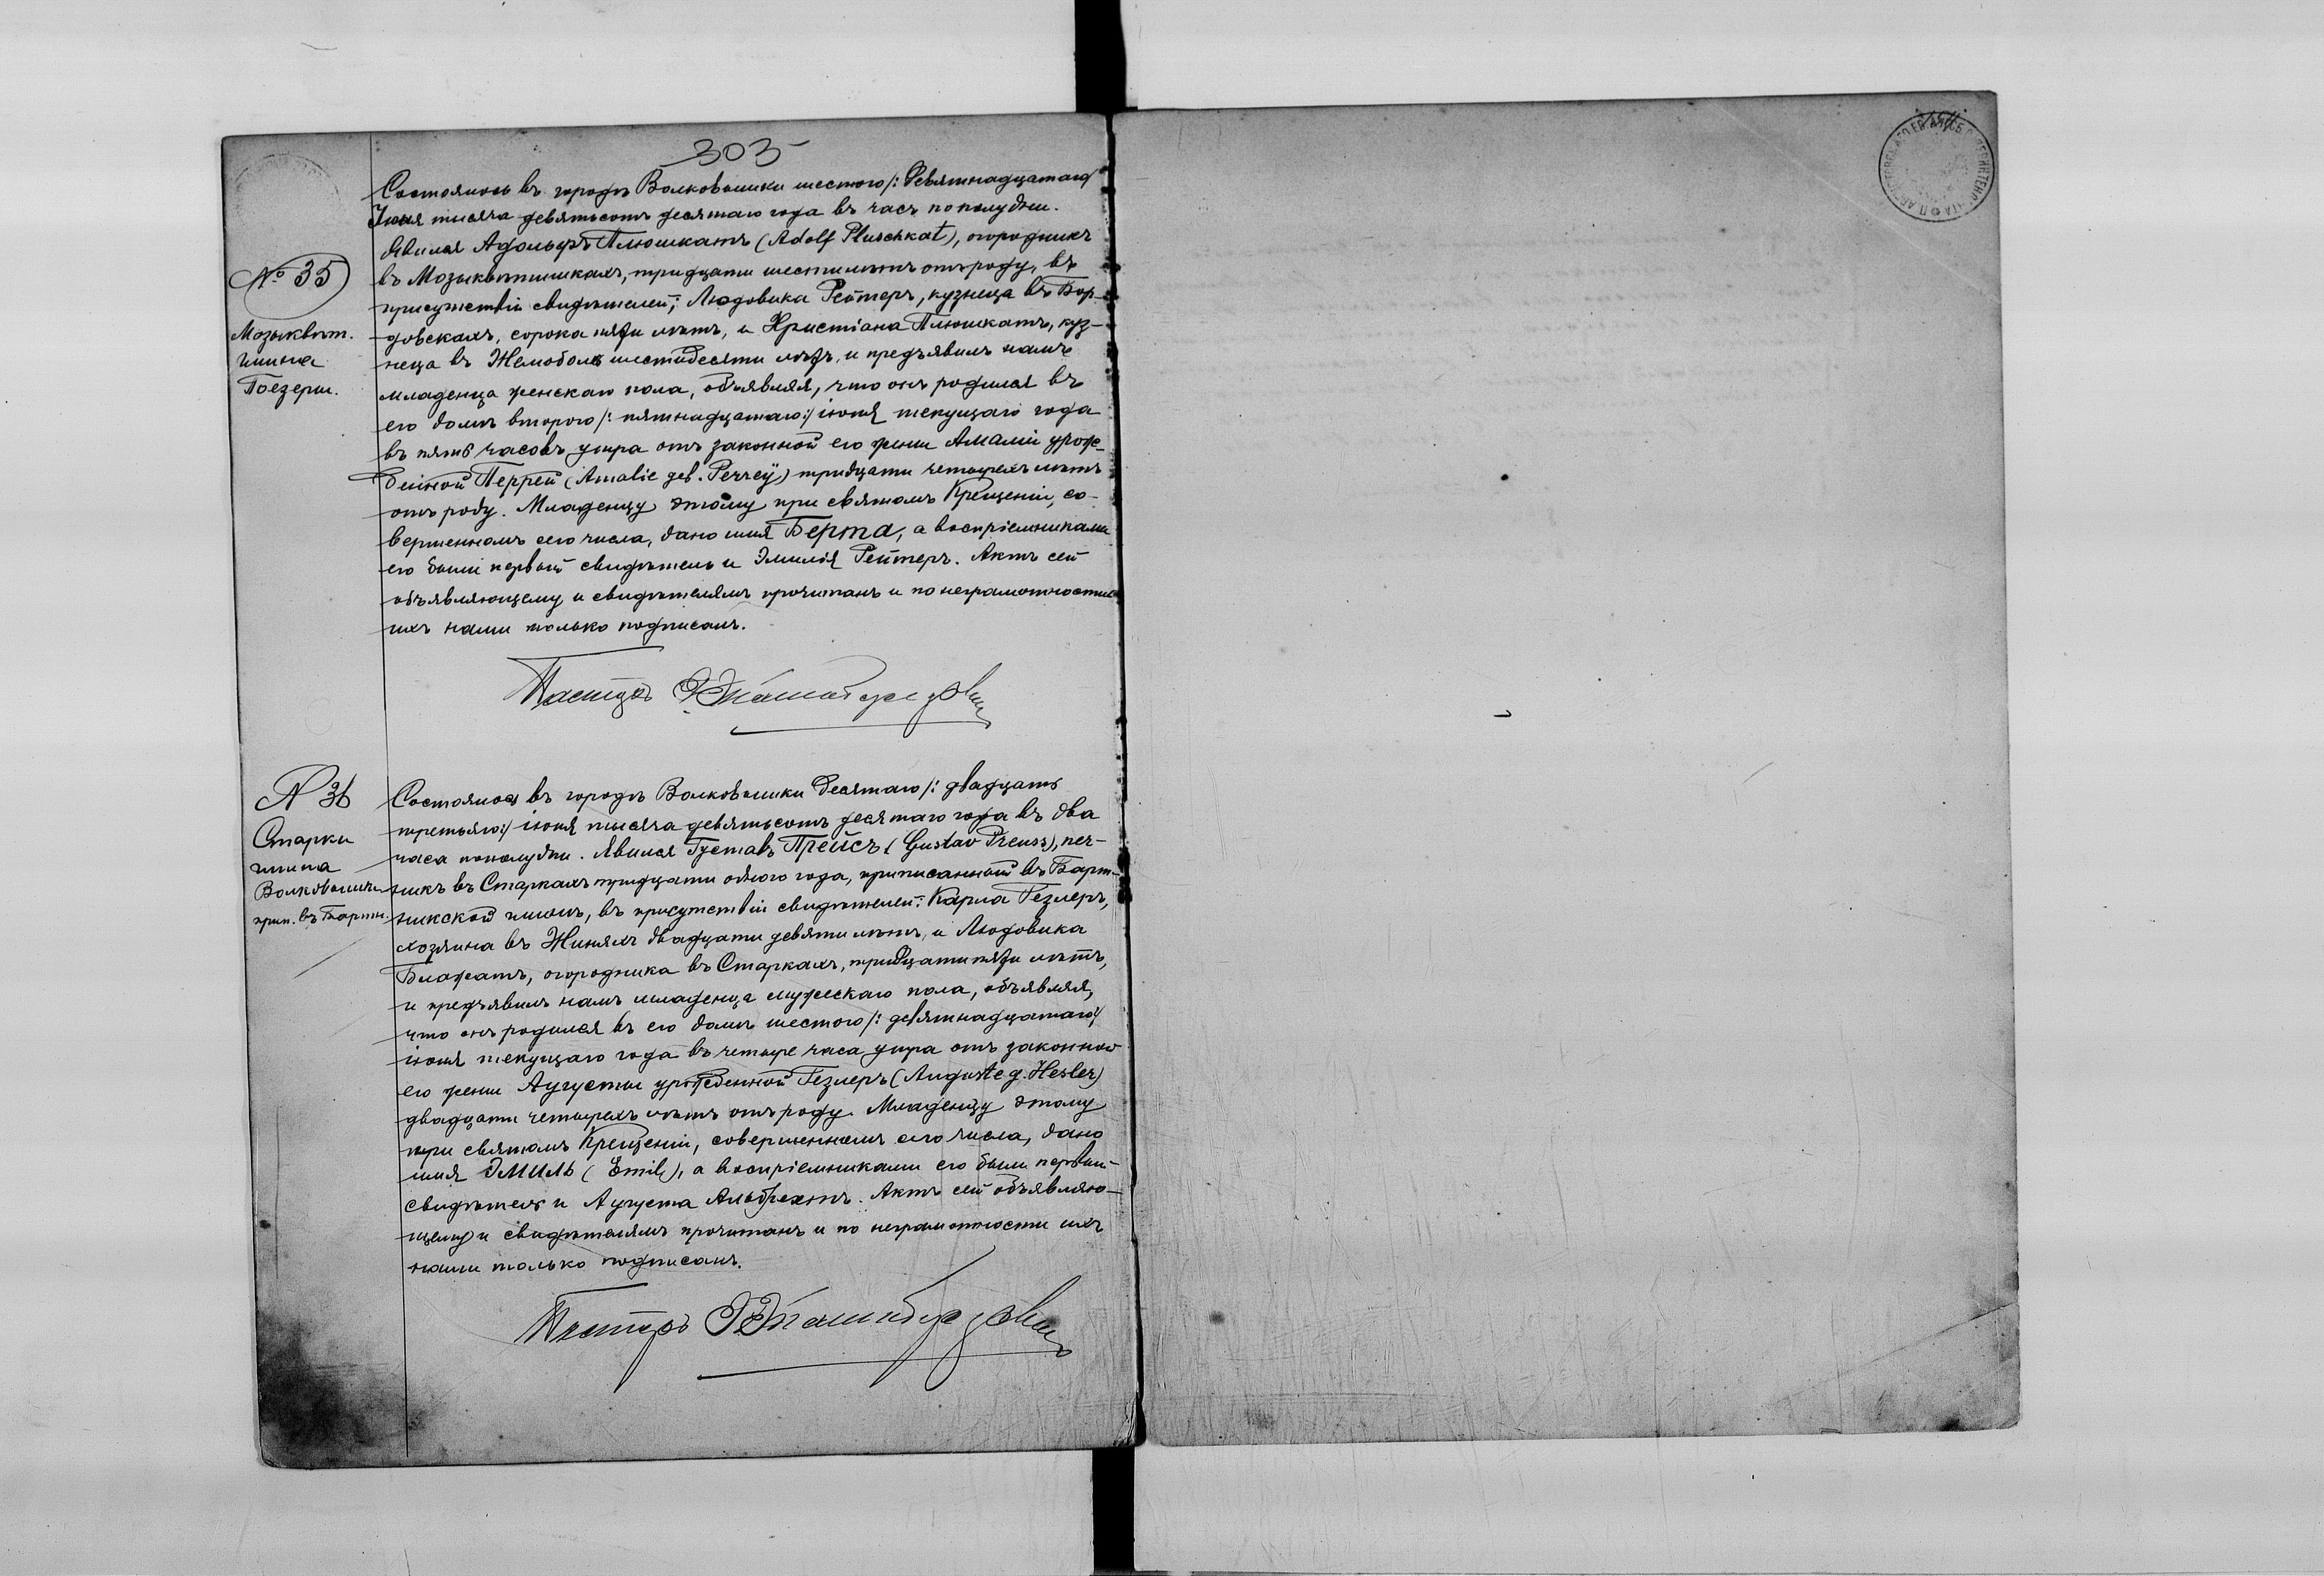 303
Состоялось въ городѣ Волковышки шестого /: Девятнадцатаго
Іюня тысяча девятьсотъ десятаго года въ часъ пополудни.
Явился Адольфъ Плюшкатъ (Adolf Pluschkat), огородникъ
№ 35
въ Мозыквѣтишкахъ, тридцати шести лѣтъ отъ роду, въ
присутствіи свидѣтелей; Людовика Рейтеръ, кузнеца въ Бор-
Мозыквѣт.
довскахъ, сорока пяти лѣтъ, и Христіана Плюшкатъ, куз-
гмина
неца въ шестидесяти лѣтъ, и предъявилъ намъ
Поезеры.
младенца женскаго пола, объявляя, что онъ родился въ
его домѣ второго /: пятнадцатаго :/ іюня текущаго года
въ пять часовъ утра отъ законной его жены Амаліи урож-
денной Перрей (Amalie дев. Perrey) тридцати четырехъ лѣтъ
отъ роду. Младенцу этому при святомъ Крещеніи, со-
вершенномъ сего числа, дано имя Берта, а воспріемниками
его были первый свидѣтель и Эмилія Рейтеръ. Актъ сей
объявляющему и свидѣтелямъ прочитанъ и по неграмотности
ихъ нами только подписанъ.
Пасторъ
№ 36
Состоялось въ городѣ Волковышки Десятаго /: двадцать
третьяго :/ іюня тысяча девятьсотъ десятаго года въ два
Старки
часа пополудни. Явился Густавъ Прейсъ (Gustav Preuss), печ-
гмина
никъ въ Старкахъ тридцати одного года, приписанный въ Барт-
Волковышки
никской гминѣ, въ присутствіи свидѣтелей: Карла Гезлеръ,
прип. въ Бартн.
хозяина въ Жиняхъ двадцати девяти лѣтъ, и Людовика
огородника въ Старкахъ, тридцати пяти лѣтъ,
и предъявилъ намъ младенца мужескаго пола, объявляя,
что онъ родился въ его домѣ шестого /: девятнадцатаго :/
іюня текущаго года въ четыре часа утра отъ законной
его жены Аугусты урожденной Гезлеръ (Auguste g. Hesler)
двадцати четырехъ лѣтъ отъ роду. Младенцу этому
при святомъ Крещеніи, совершенномъ сего числа, дано
имя Эмиль (Emil), а воспріемниками его были первый
свидѣтель и Аугуста Альбрехтъ. Актъ сей объявляю-
щему и свидѣтелямъ прочитанъ и по неграмотности ихъ
нами только подписанъ.
Пасторъ